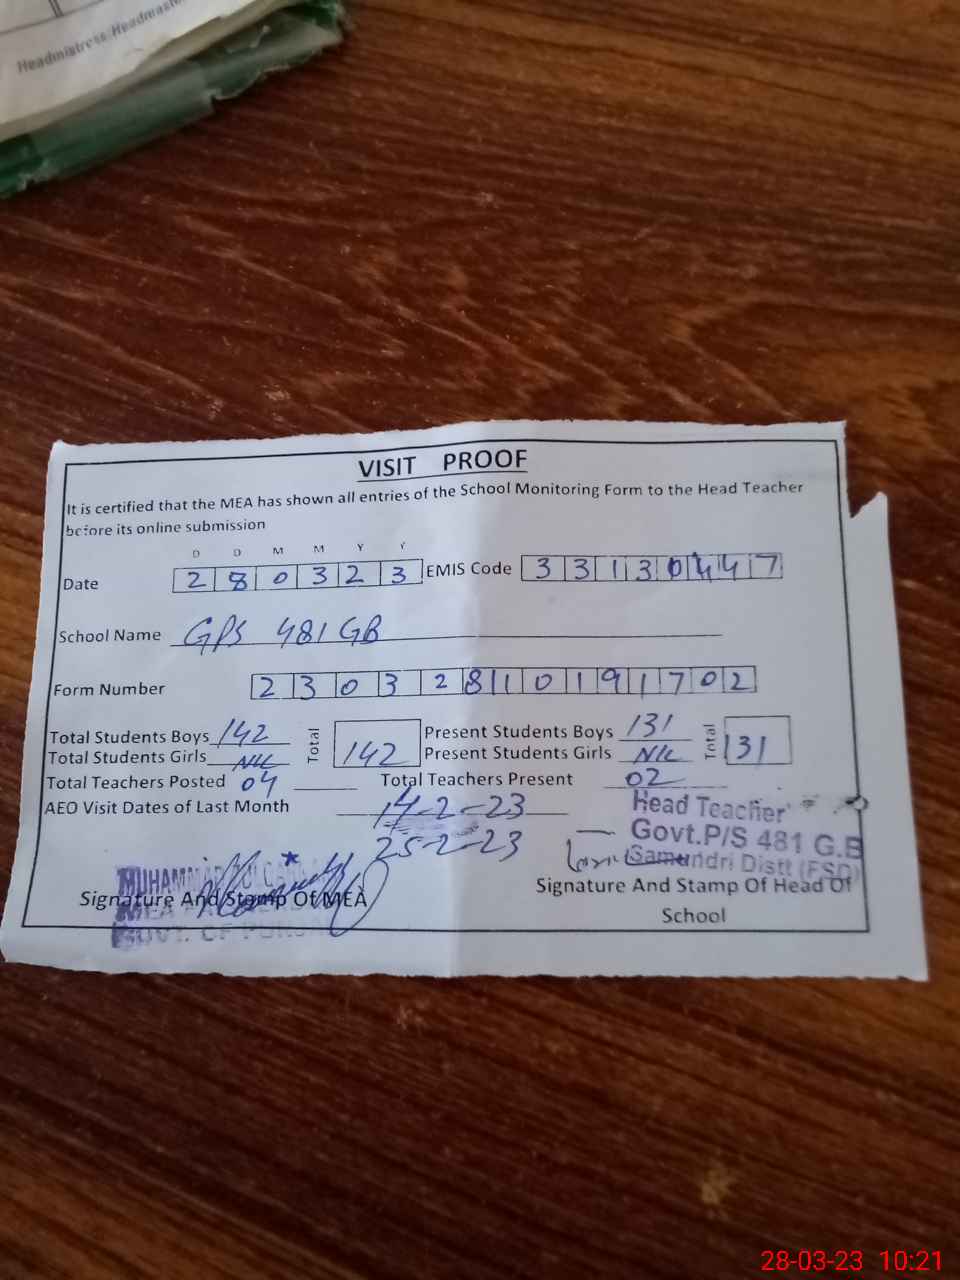 Headmistress/Headmaster
VISIT PROOF
It is certified that the MEA has shown all entries of the School Monitoring Form to the Head Teacher
before its online submission
D D M M Y Y
Date 2 8 0 3 2 3 EMIS Code 3 3 1 3 0 4 4 7
School Name GPS 481 GB
Form Number 2 3 0 3 2 8 1 0 1 9 1 7 0 2
Total Students Boys 142 Total 142 Present Students Boys 131 Total 131
Total Students Girls Nil Present Students Girls Nil
Total Teachers Posted 04 Total Teachers Present 02
AEO Visit Dates of Last Month 14-2-23
25-2-23
Head Teacher
Govt.P/S 481 G.B
Samundri Distt (FSD)
MUHAMMAD
Signature And Stamp Of MEA
MEA
GOVT. OF PUNJAB
Signature And Stamp Of Head Of
School
28-03-23 10:21